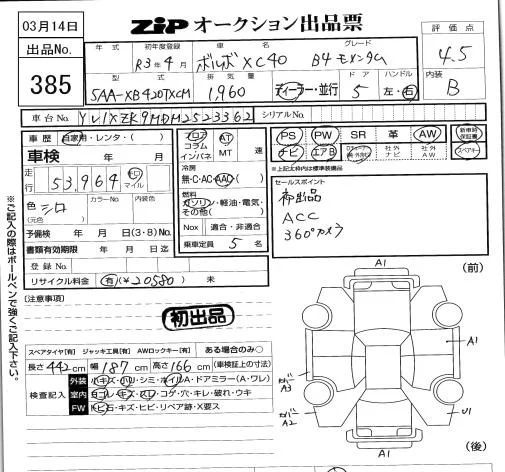 03月14日
ZIP オークション出品票
出品No.
385
年式 初年度登録 車名 グレード
R3年4月 ボルボ XC40 B4 モメンタム
型式 排気量 ドア ハンドル
5AA-XB420TXCM 1,960 ディーラー・並行 5 左・右
評価点
4.5
内装
B
車台No. YV1XZK9MDM2523362 シリアルNo.
車歴 自家用・レンタ・( )
車検 年 月
走行 53,964 km マイル
色 シロ (元色) カラーNo. 内装色
予備検 年 月 日(3・8)No.
書類有効期限 年 月 日迄
登録No.
リサイクル料金 有(¥20580) 未
フロア コラム インパネ AT MT 速
冷房 無・C・AC・AAC
燃料 ガソリン・軽油・電気・その他( )
Nox 適合・非適合
乗車定員 5 名
PS PW SR 革 AW 新車時保証書
ナビ エアB 社外ナビ 社外AW スペアキー
*上記太枠内は標準装備品
セールスポイント
初出品
ACC
360°カメラ
※ご記入の際はボールペンで強くご記入下さい。
(注意事項)
初出品
スペアタイヤ【有】 ジャッキ工具【有】 AWロックキー【有】 ある場合のみ○
長さ442cm 幅187cm 高さ166cm (車検証上の寸法)
検査記入
外装 小キズ・小リ・シミ・ホイルA・ドアミラー(A・ワレ)
室内 ヨゴレ・キズ・スレ・コゲ・穴・キレ・破れ・ウキ
FW トビ石・キズ・ヒビ・リペア跡・X要ス
(前)
A1
A1
カバー A3
カバー A2
U1
A1
(後)